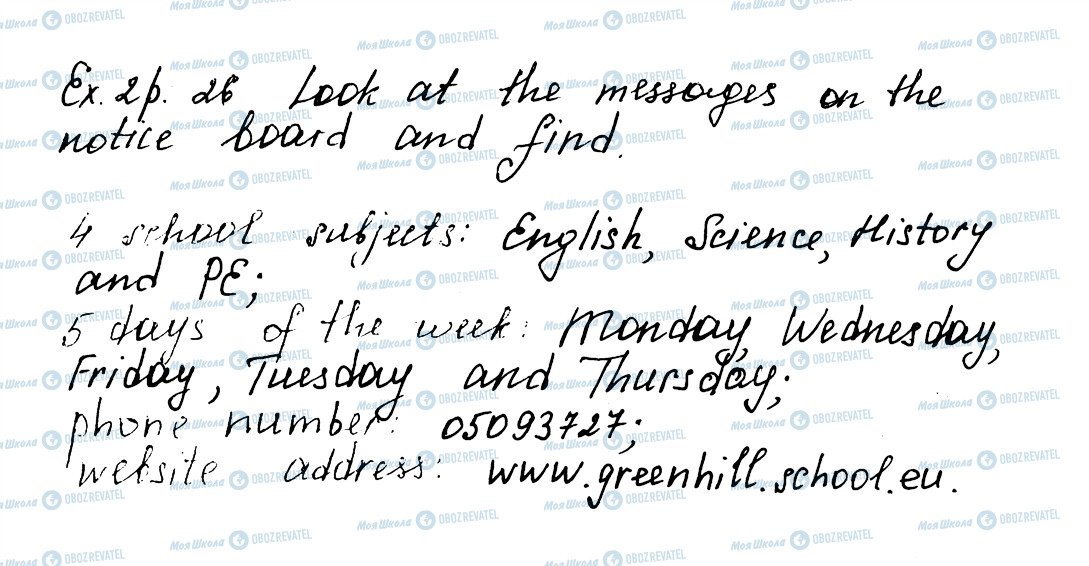 Ex. 2 p. 26 Look at the messages on the
notice board and find.
4 school subjects: English, Science, History
and PE;
5 days of the week: Monday, Wednesday,
Friday, Tuesday and Thursday;
phone number: 05093727;
website address: www.greenhill.school.eu.